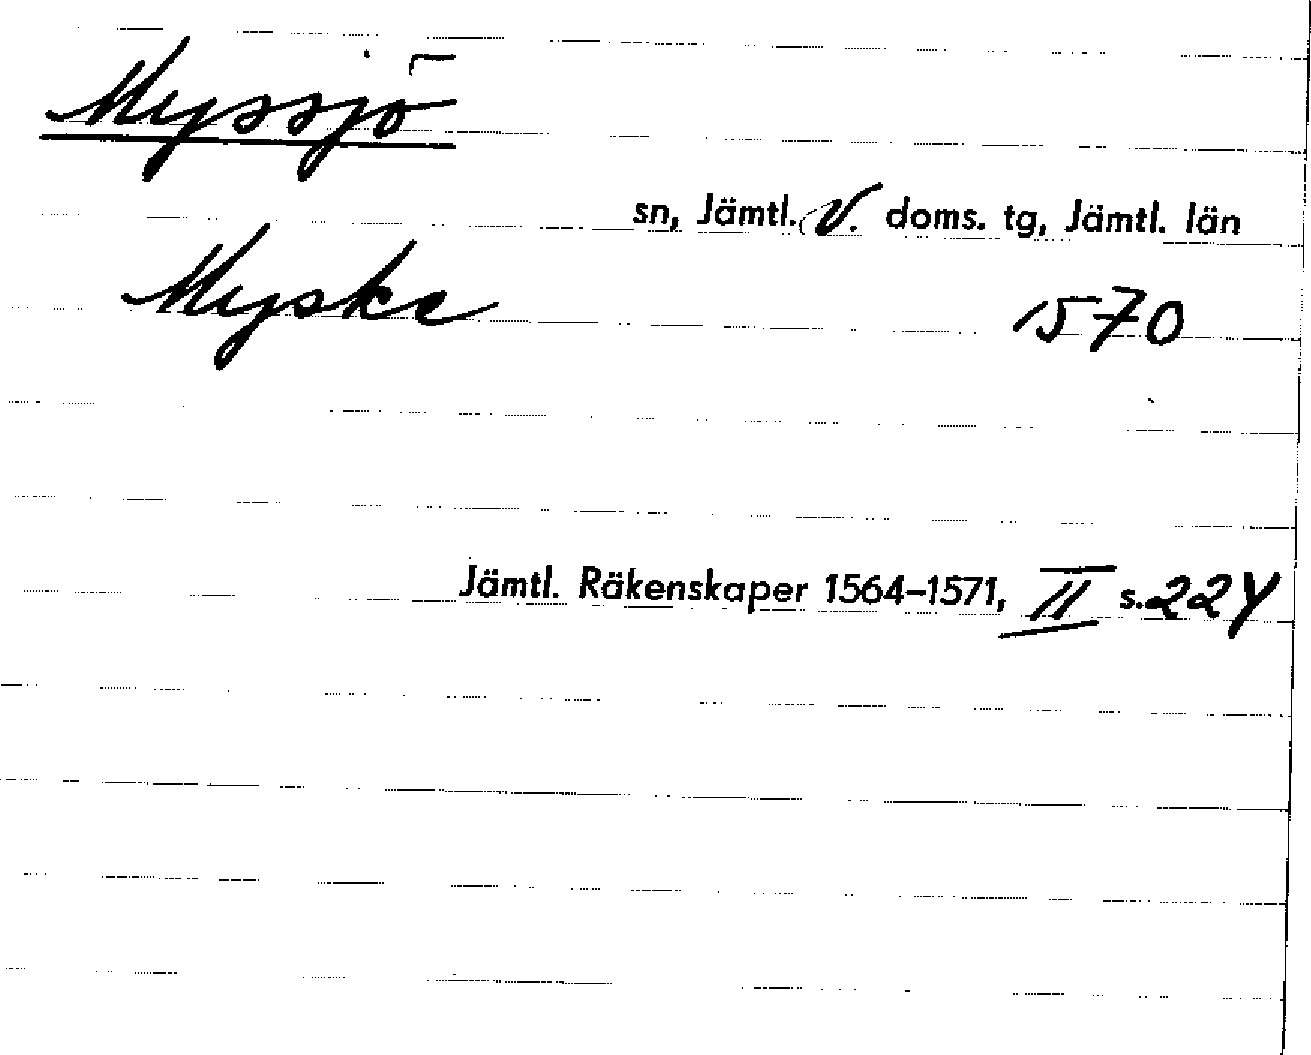 Myssjö
sn, Jämtl. V. doms. tg, Jämtl. län
Myske 1570
Jämtl. Räkenskaper 1564–1571, II s. 224